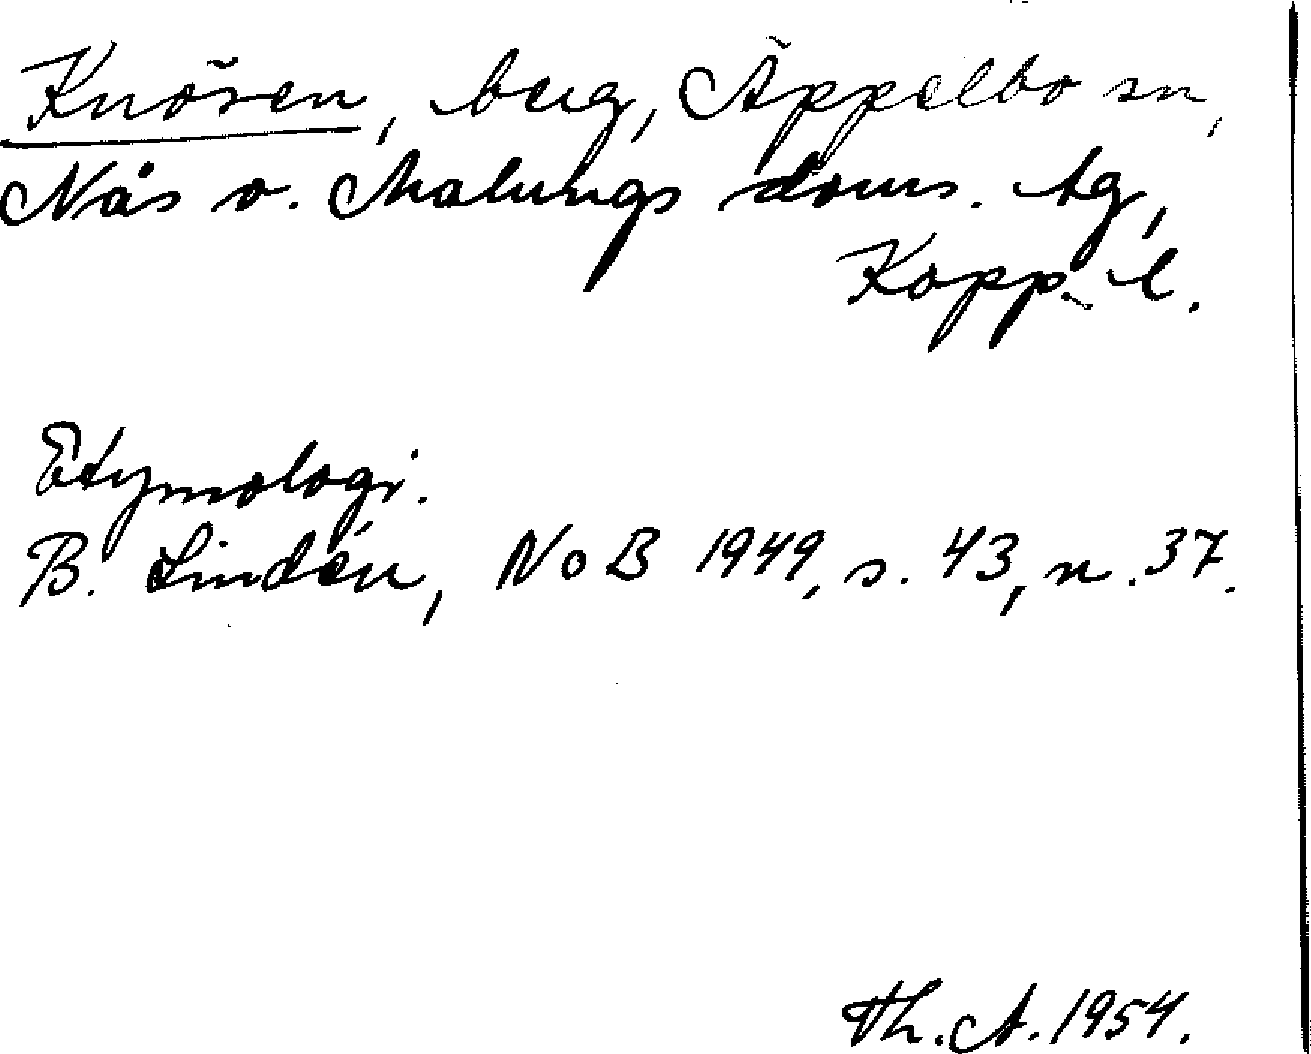 Knösen, berg, Äppelbo sn,
Nås o. Malungs doms. tg,
Kopp. l.
Etymologi.
B. Lindén, NoB 1949, s. 43, n. 37.
Th. A. 1954.